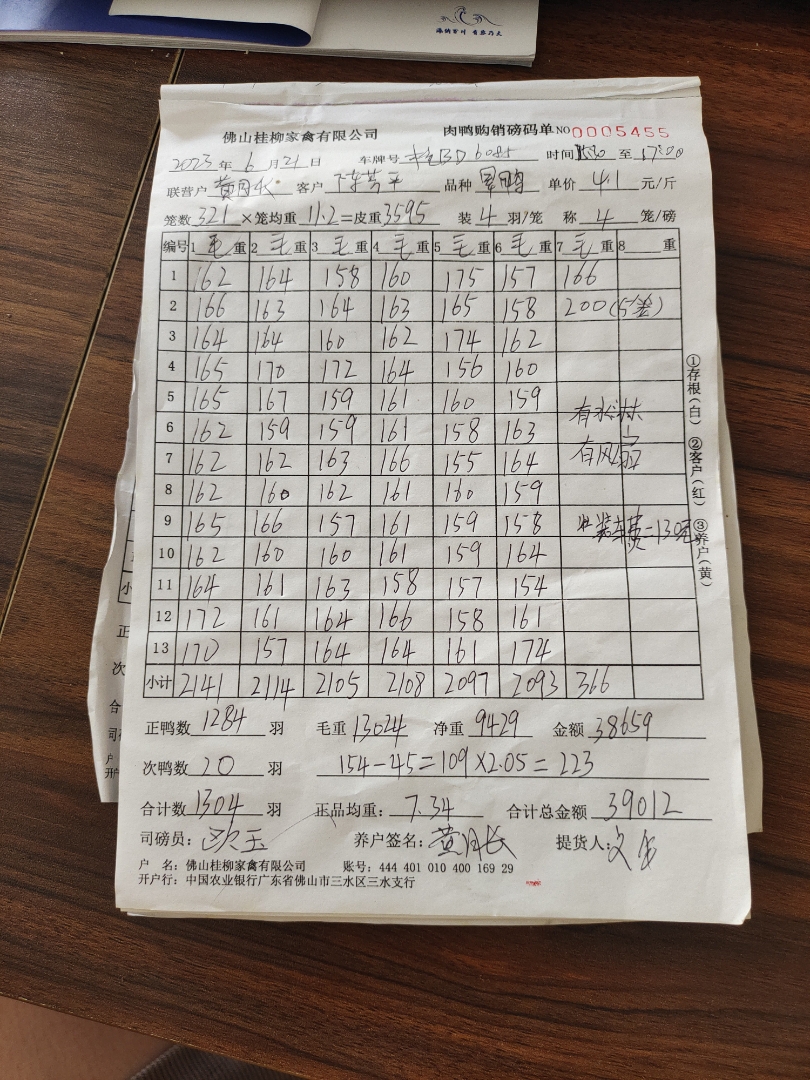 海纳百川 有容乃大
佛山桂柳家禽有限公司 肉鸭购销磅码单 NO 0005455
2023 年 6 月 21 日 车牌号 6085 时间 至 17:00
联营户 黄月长 客户 陈芳平 品种 单价 4.1 元/斤
笼数 321 × 笼均重 11.2 = 皮重 3595 装 4 羽/笼 称 4 笼/磅
编号 1 毛 重 2 毛 重 3 毛 重 4 毛 重 5 毛 重 6 毛 重 7 毛 重 8 重
1 162 164 158 160 175 157 166
2 166 163 164 163 165 158 200 (5笼)
3 164 164 160 162 174 162
4 165 170 172 164 156 160
5 165 167 159 161 160 159
有水淋
6 162 159 159 161 158 163
7 162 162 163 166 155 164 有风扇
8 162 160 162 161 160 159
9 165 166 157 161 159 158 装车费=130元
10 162 160 160 161 159 164
11 164 161 163 158 157 154
12 172 161 164 166 158 161
13 170 157 164 164 161 174
小计 2141 2114 2105 2108 2097 2093 366
①存根(白) ②客户(红) ③养户(黄)
正鸭数 1284 羽 毛重 13024 净重 9429 金额 38659
次鸭数 20 羽 154-45=109×2.05=223
合计数 1304 羽 正品均重: 7.34 合计总金额 39012
司磅员: 欧玉 养户签名: 黄月长 提货人:
户 名: 佛山桂柳家禽有限公司 账号: 444 401 010 400 169 29
开户行: 中国农业银行广东省佛山市三水区三水支行